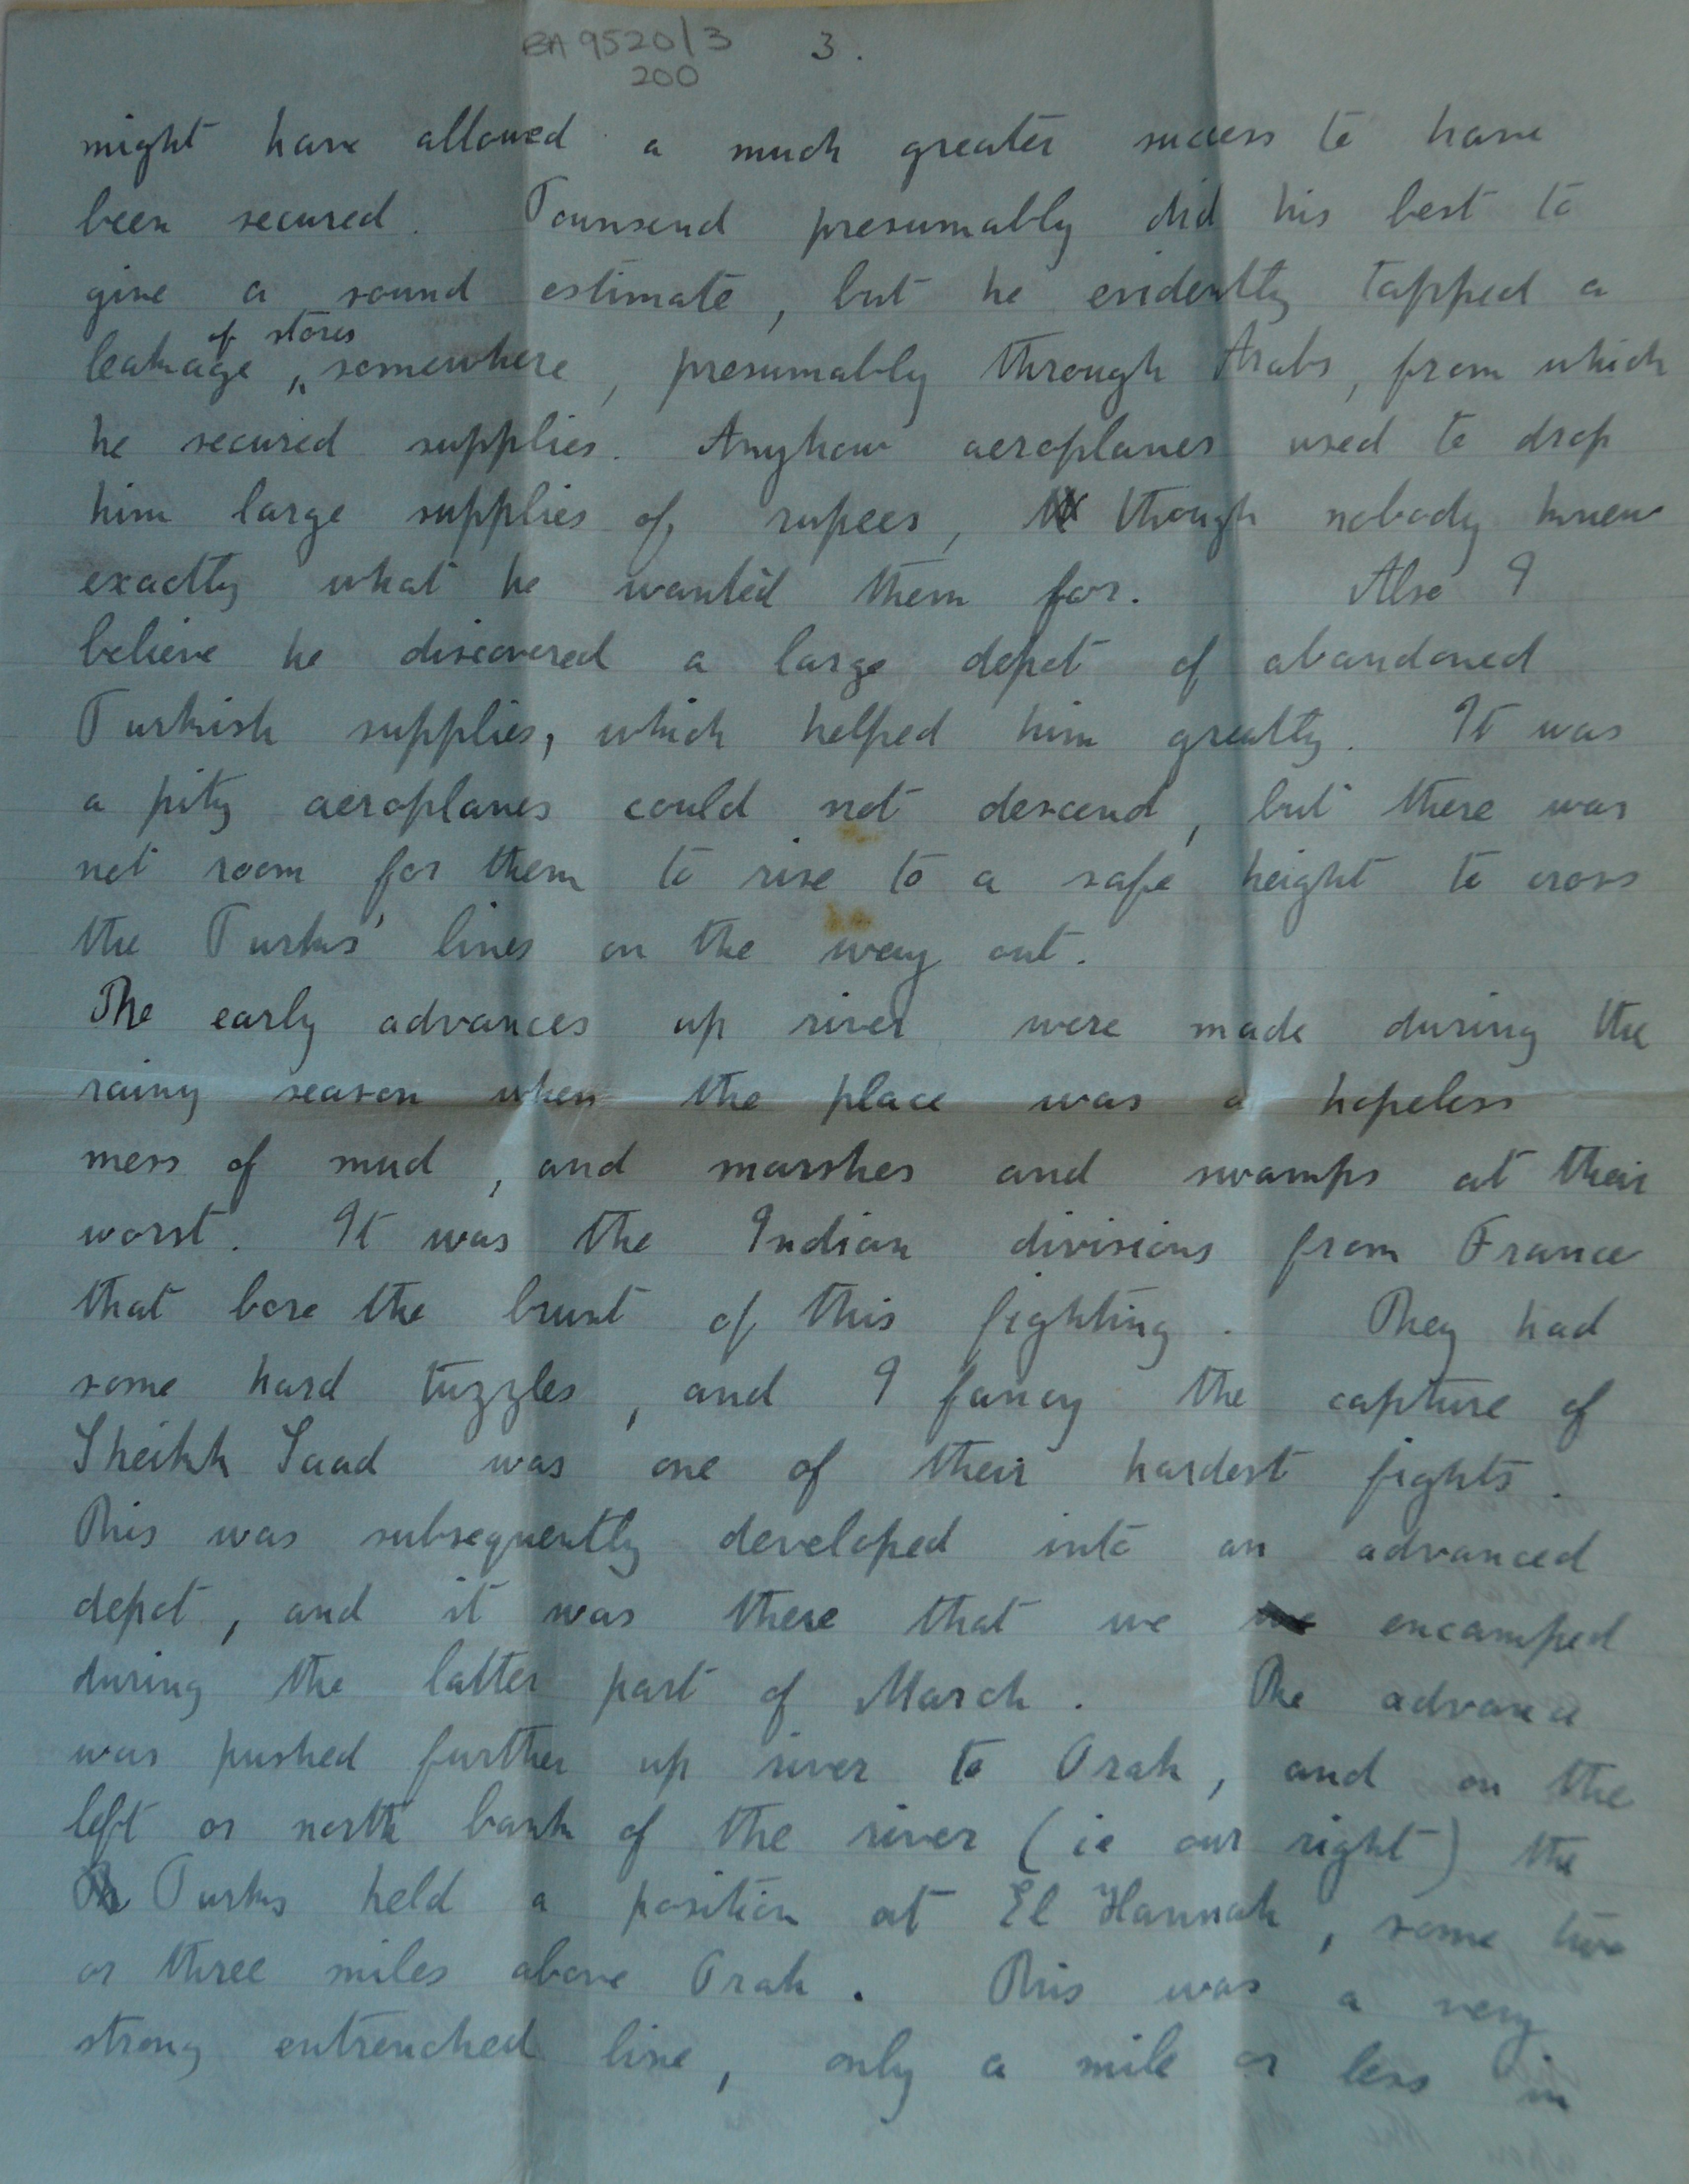 BA 9520/3 3.
200
might have allowed a much greater success to have
been secured. Townsend presumably did his best to
give a sound estimate, but he evidently tapped a
of stores
leakage ^ somewhere, presumably through Arabs, from which
he secured supplies. Anyhow aeroplanes used to drop
him large supplies of rupees, though nobody knew
exactly what he wanted them for. Also I
believe he discovered a large depot of abandoned
Turkish supplies, which helped him greatly. It was
a pity aeroplanes could not descend, but there was
not room for them to rise to a safe height to cross
the Turks' lines on the way out.
The early advances up river were made during the
rainy season when the place was a hopeless
mess of mud, and marshes and swamps at their
worst. It was the Indian divisions from France
that bore the brunt of this fighting. They had
some hard tuzzles, and I fancy the capture of
Sheikh Saad was one of their hardest fights.
This was subsequently developed into an advanced
depot, and it was there that we encamped
during the latter part of March. The advance
was pushed further up river to Orah, and on the
left or north bank of the river (ie our right) the
Turks held a position at El Hannah, some two
or three miles above Orah. This was a very
strong entrenched line, only a mile or less in